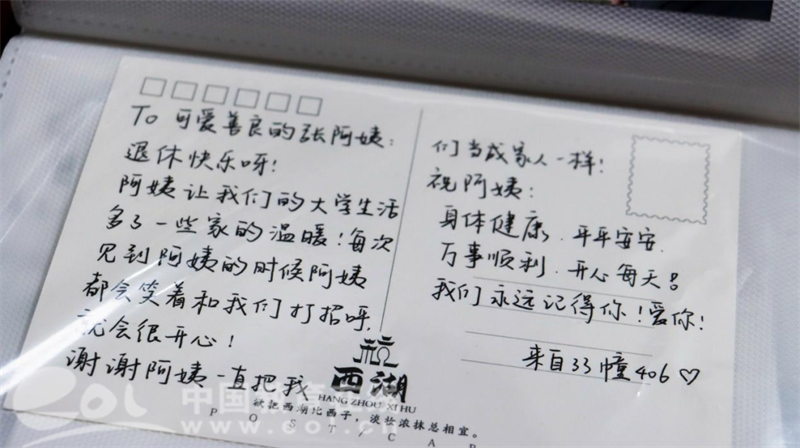 To 可爱善良的張阿姨:
退休快乐呀!
阿姨让我们的大学生活
多了一些家的温暖!每次
见到阿姨的时候阿姨
都会笑着和我们打招呼,
就会很开心!
谢谢阿姨一直把我
们当成家人一样!
祝阿姨:
身体健康.平平安安.
万事顺利.开心每天!
我们永远记得你!爱你!
来自33幢406♡
西湖
HANG ZHOU XI HU
欲把西湖比西子,淡妆浓抹总相宜。
P O S T C A R
eol 中国教育在线